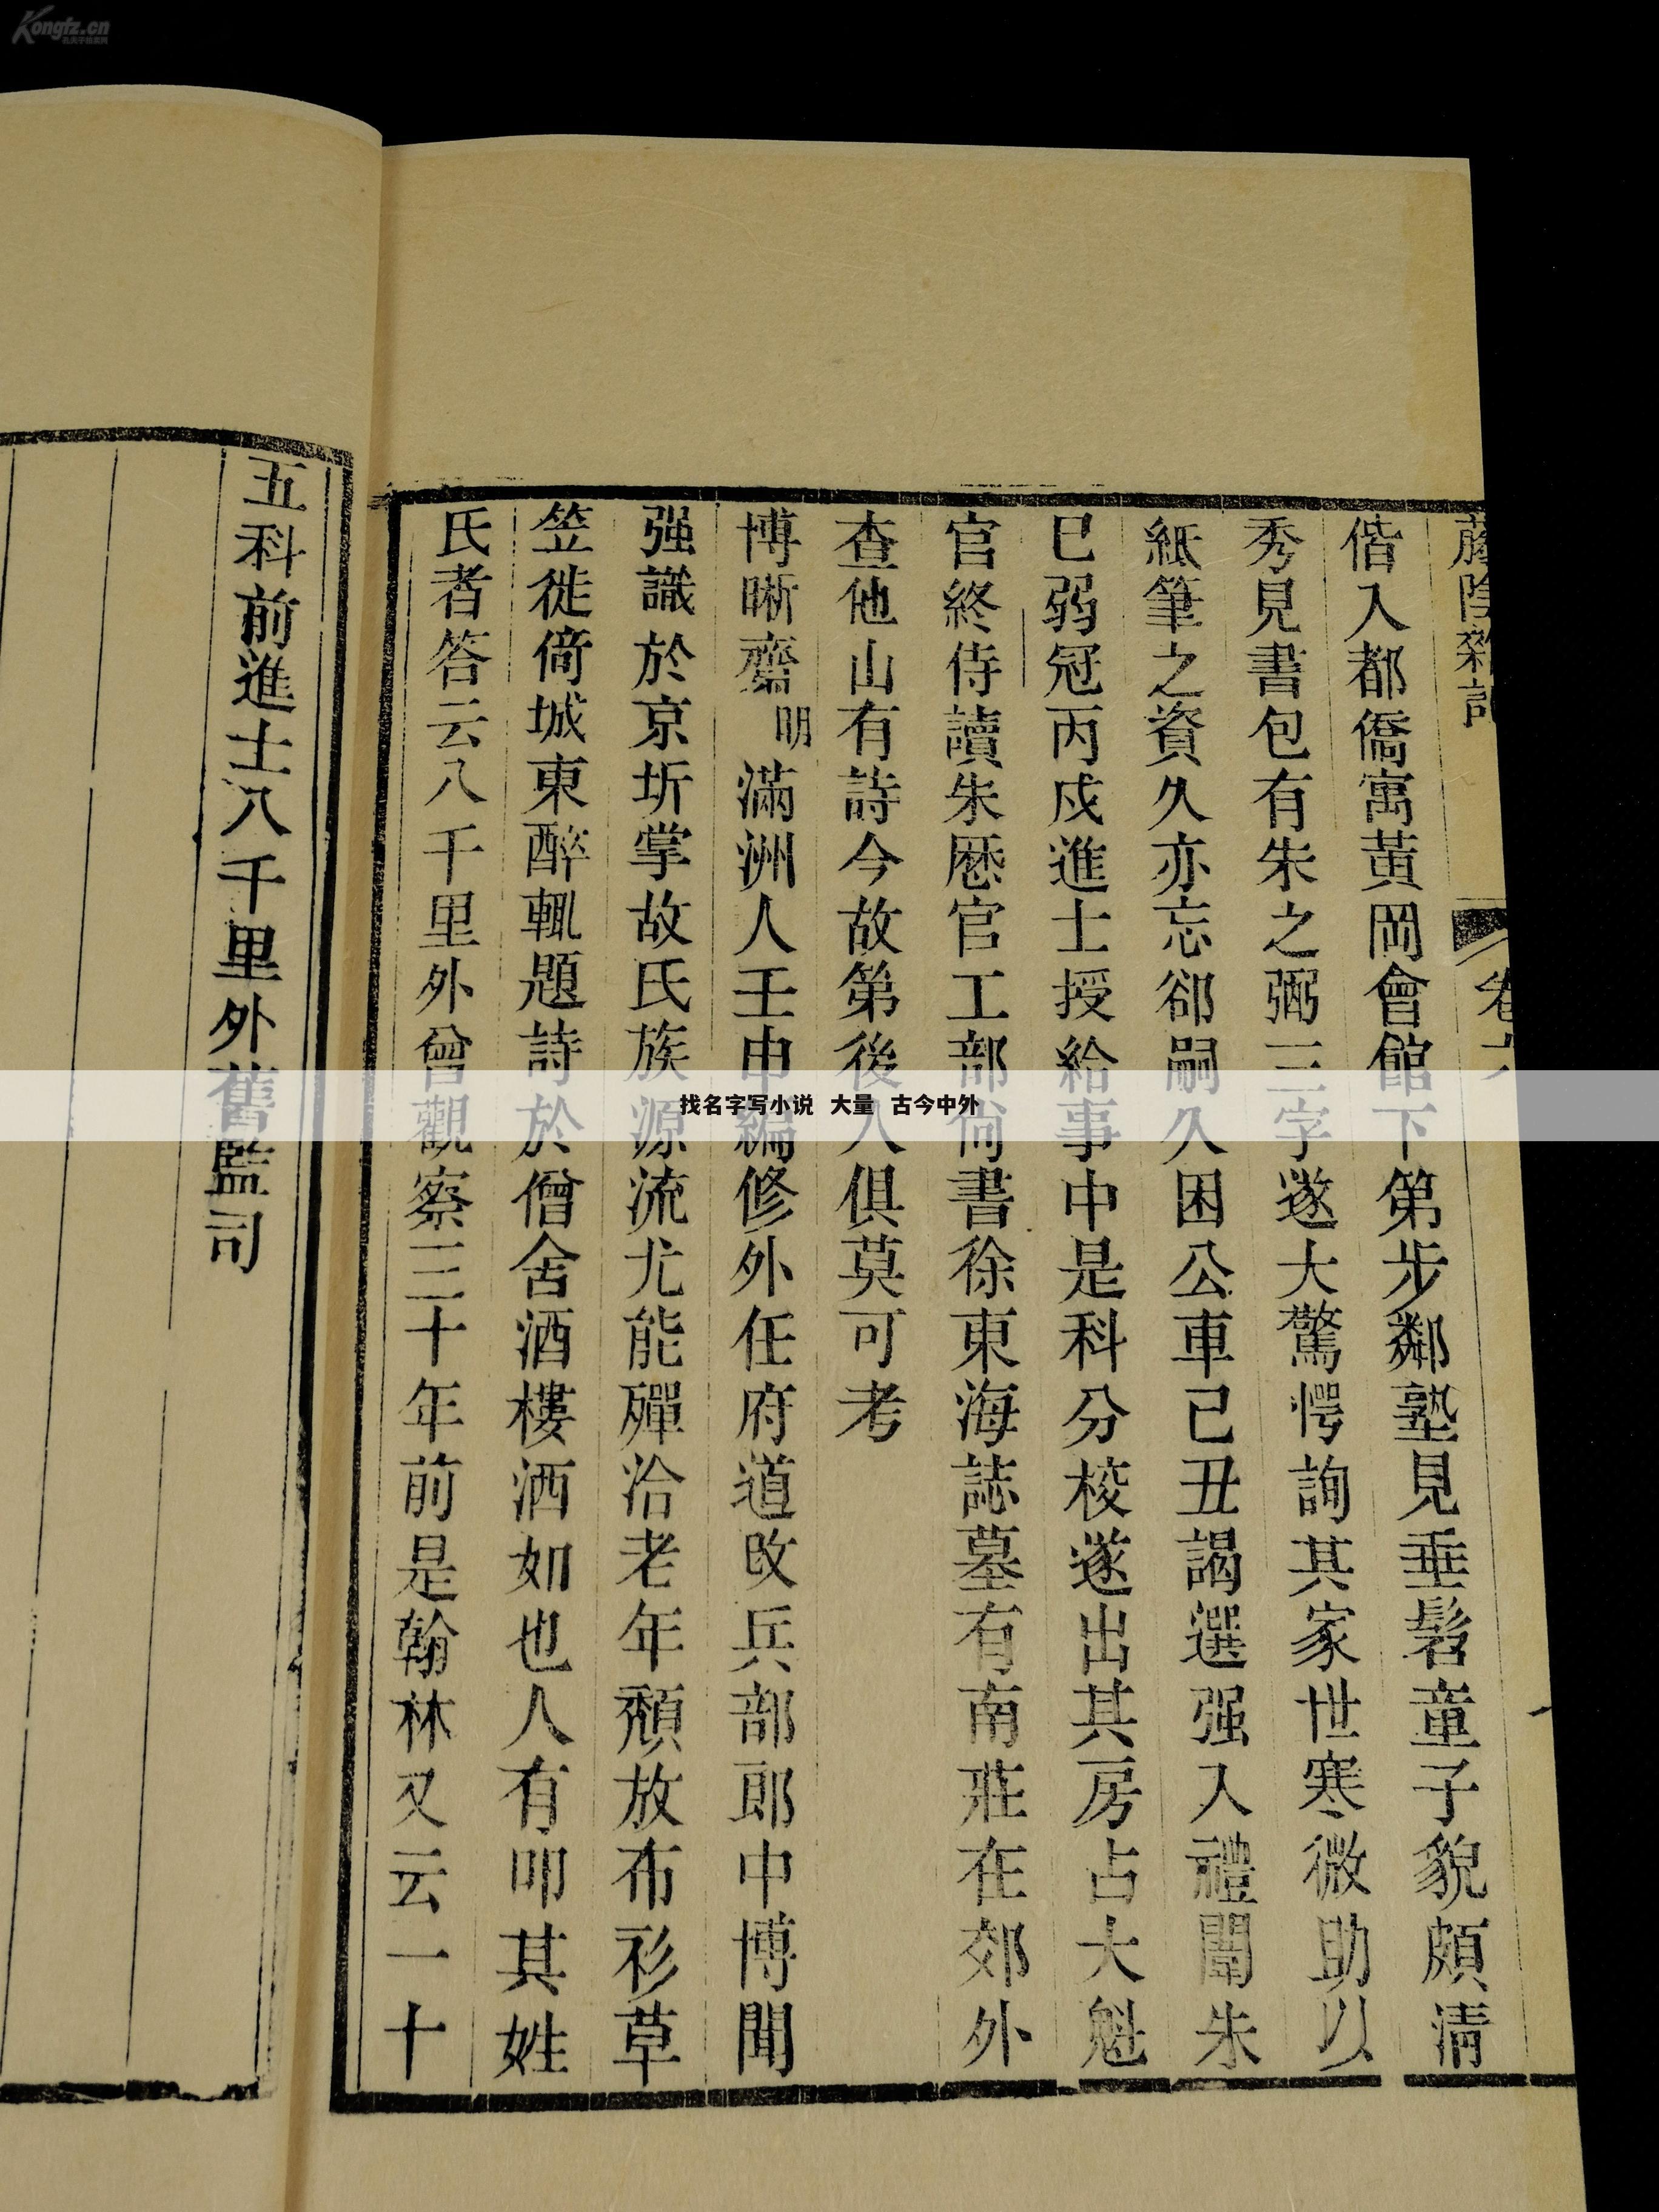 Kongfz.cn
孔夫子旧书网
藤陰雜記
卷六
偕入都僑寓黃岡會館下第步鄰塾見垂髫童子貌頗清
秀見書包有朱之弼三字遂大驚愕詢其家世寒微助以
紙筆之資久亦忘卻嗣久困公車己丑謁選强入禮闈朱
巳弱冠丙戌進士授給事中是科分校遂出其房占大魁
官終侍讀朱歷官工部尚書徐東海誌墓有南莊在郊外
查他山有詩今故第後人俱莫可考
博晰齋明滿洲人壬申編修外任府道改兵部郎中博聞
强識於京圻掌故氏族源流尤能殫洽老年頹放布衫草
笠徙倚城東醉輒題詩於僧舍酒樓洒如也人有叩其姓
氏者答云八千里外曾觀察三十年前是翰林又云一十
五科前進士八千里外舊監司
找名字写小说 大量 古今中外